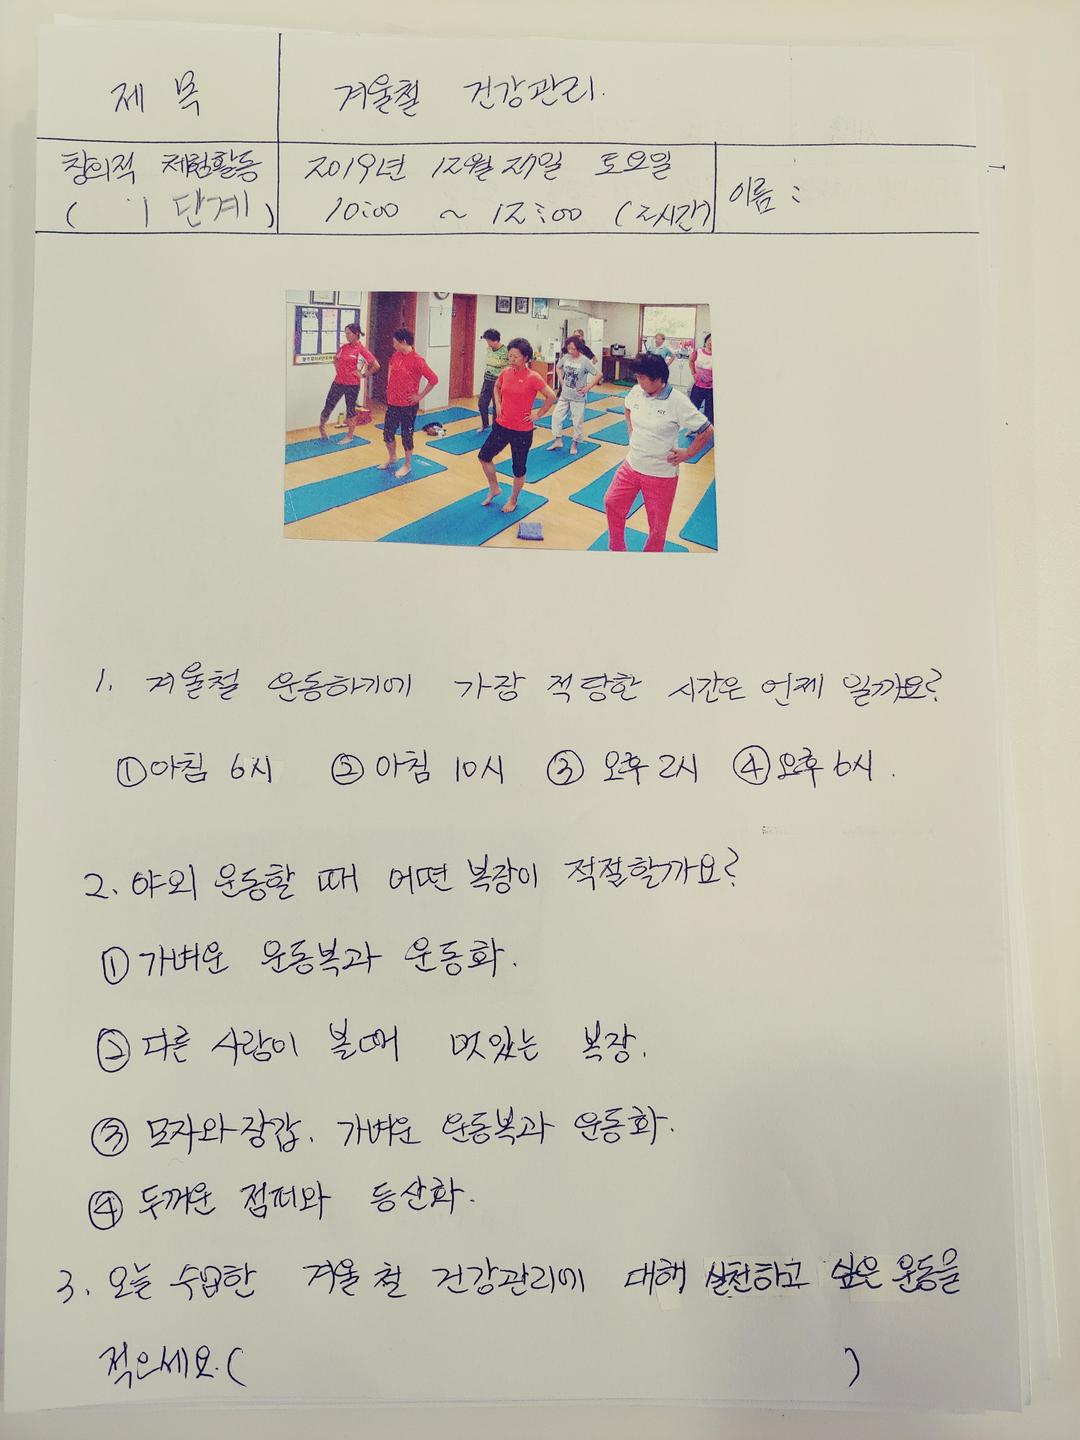 제 목 겨울철 건강관리.
창의적 체험활동 2019년 12월 27일 토요일 이름 :
( 1 단계 ) 10:00 ~ 12:00 (2시간)
1. 겨울철 운동하기에 가장 적당한 시간은 언제 일까요?
① 아침 6시 ② 아침 10시 ③ 오후 2시 ④ 오후 6시.
2. 야외 운동할 때 어떤 복장이 적절할까요?
① 가벼운 운동복과 운동화.
② 다른 사람이 볼때 멋있는 복장.
③ 모자와 장갑. 가벼운 운동복과 운동화.
④ 두꺼운 점퍼와 등산화.
3. 오늘 수업한 겨울철 건강관리에 대해 실천하고 싶은 운동을
적으세요. ( )